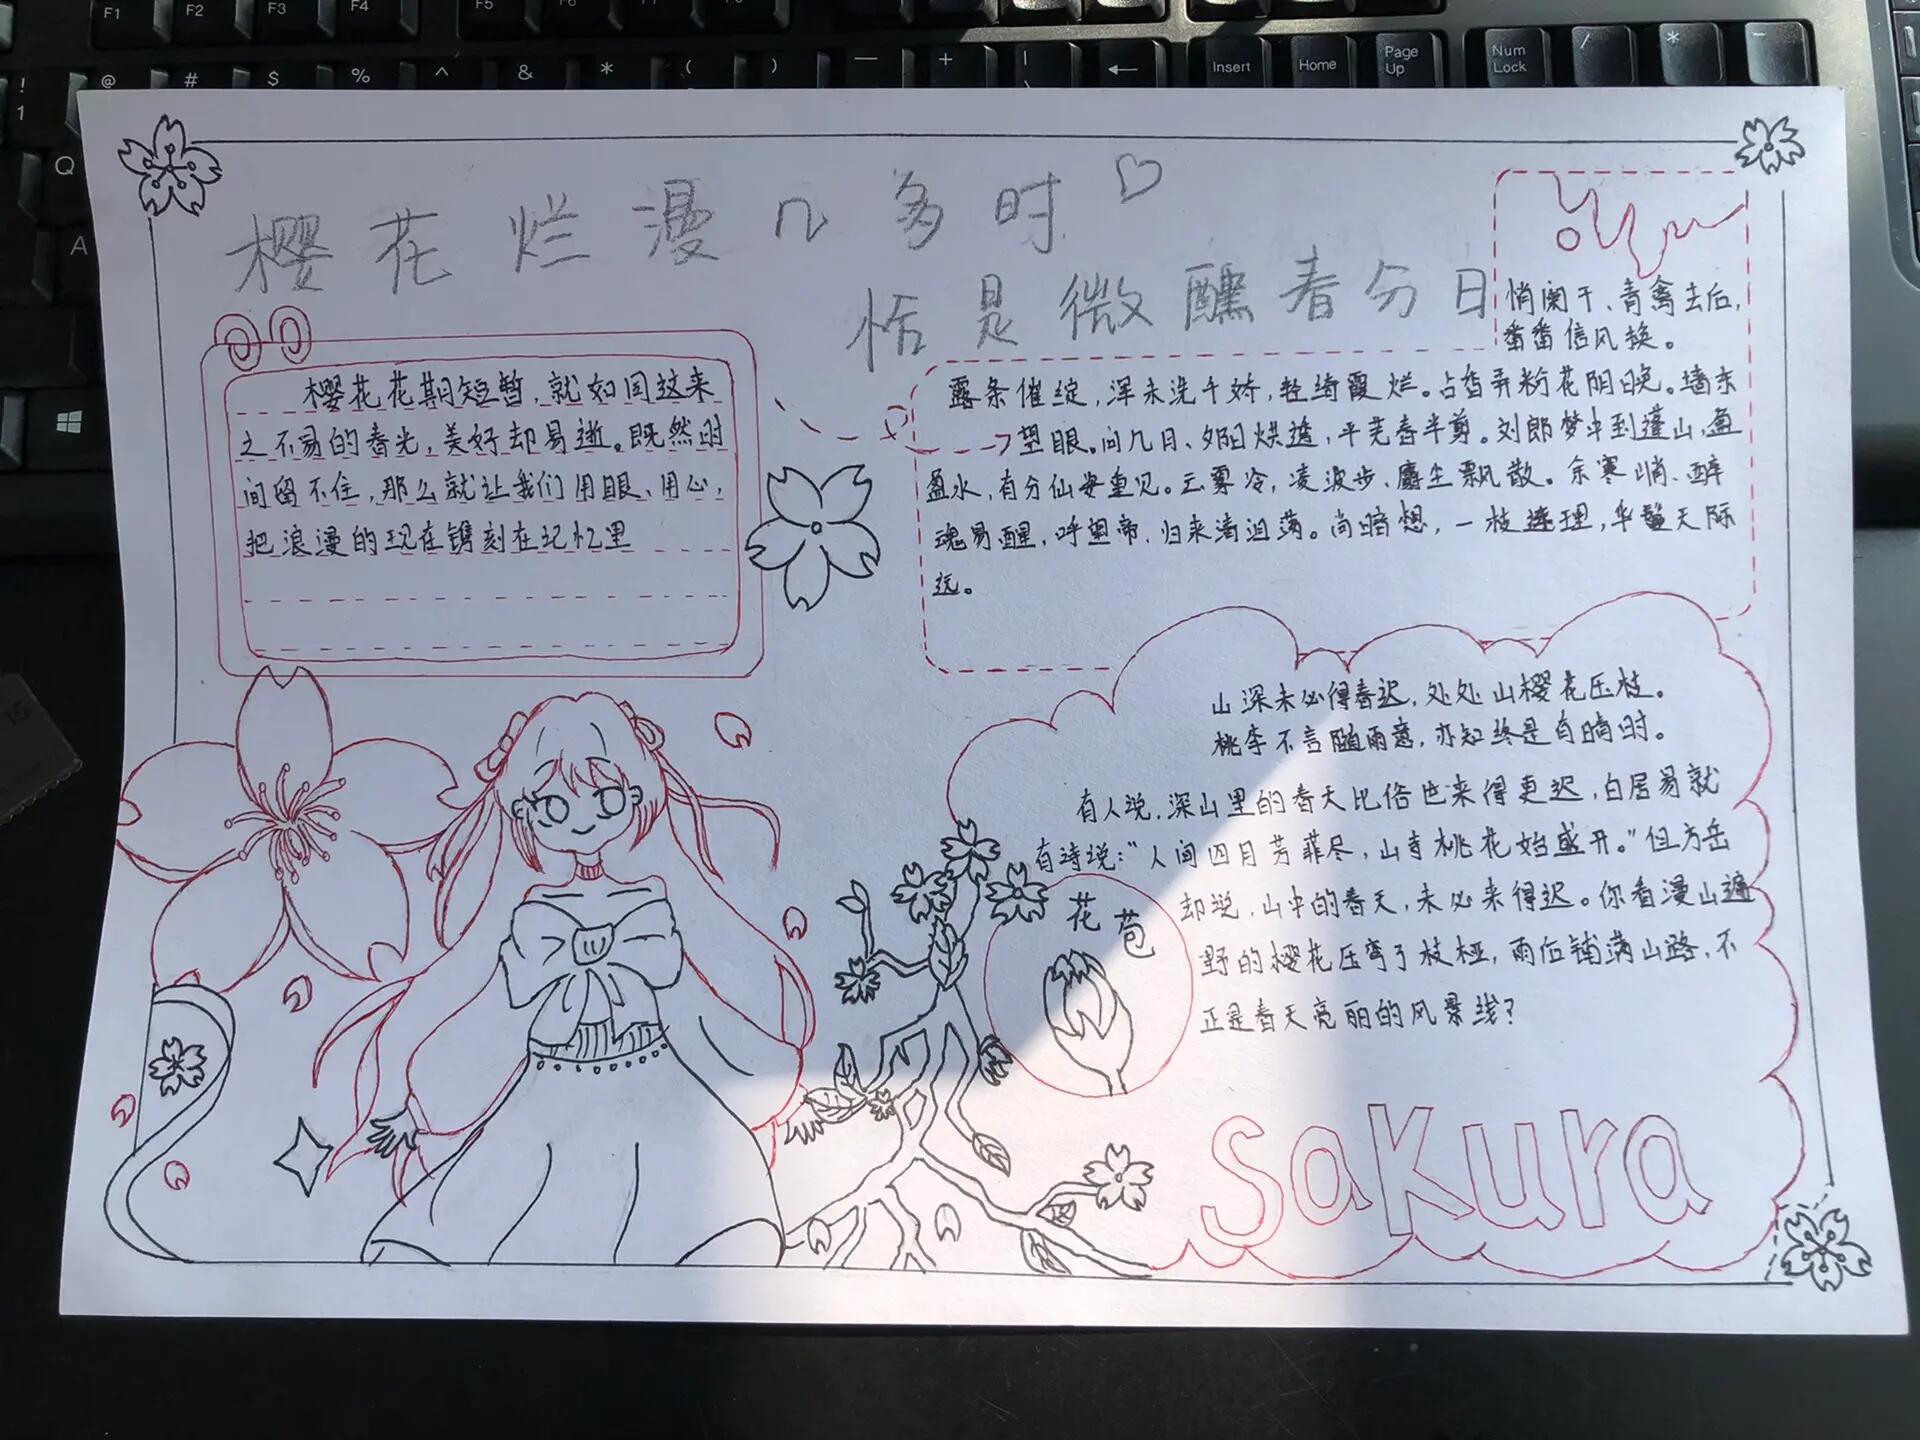 F1 F2 F3 F4 F5 F6
! @ # $ % ^ & * ( ) — +
1
Insert Home Page Up Num Lock / * -
Q
A
樱花烂漫几多时
恰是微醺春分日
悄阑干、青禽去后,
番番信风换。
樱花花期短暂,就如同这来
之不易的春光,美好却易逝。既然时
间留不住,那么就让我们用眼、用心,
把浪漫的现在镌刻在记忆里
露条催绽,浑未洗千娇,轻绮霞烂。占香弄粉花阴晚。墙东
望眼。问几日、夕阳烘透,平芜春半剪。刘郎梦中到蓬山,盈
盈水,有分仙安重见。云雾冷,凌波步、麝尘飘散。余寒悄、醉
魂易醒,呼望帝,归来清泪落。尚暗想,一枝连理,华鬘天际
远。
山深未必得春迟,处处山樱花压枝。
桃李不言随雨意,亦知终是有晴时。
有人说,深山里的春天比俗也来得更迟,白居易就
有诗说:“人间四月芳菲尽,山寺桃花始盛开。”但方岳
却说,山中的春天,未必来得迟。你看漫山遍
野的樱花压弯了枝桠,雨后铺满山路,不
正是春天亮丽的风景线?
花苞
Sakura